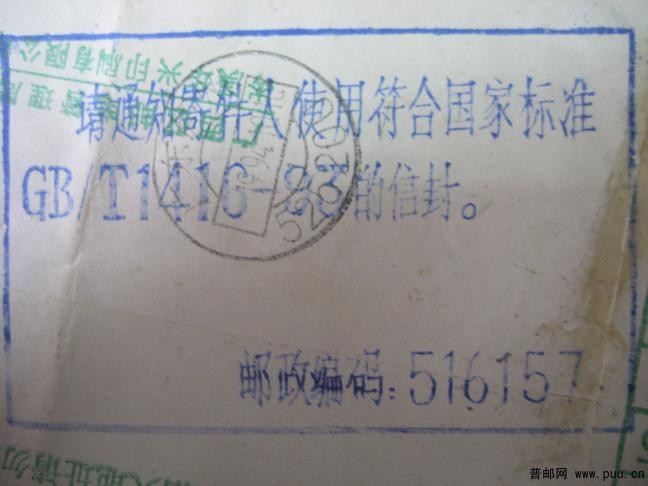 请通知寄件人使用符合国家标准
GB/T1416-93的信封。
邮政编码:516157
普邮网 www.puu.cn